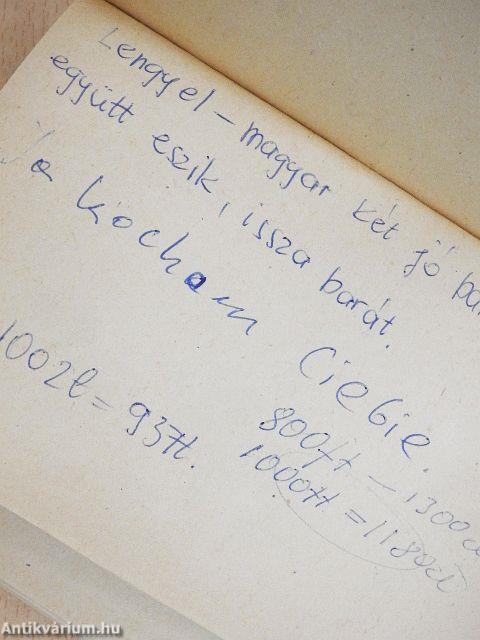 Lengyel – magyar két jó bar
együtt eszik, issza barát.
Ja kocham Ciebie.
100zł = 93Ft.
800ft – 1300zł
1000Ft = 1180zł
Antikvárium.hu